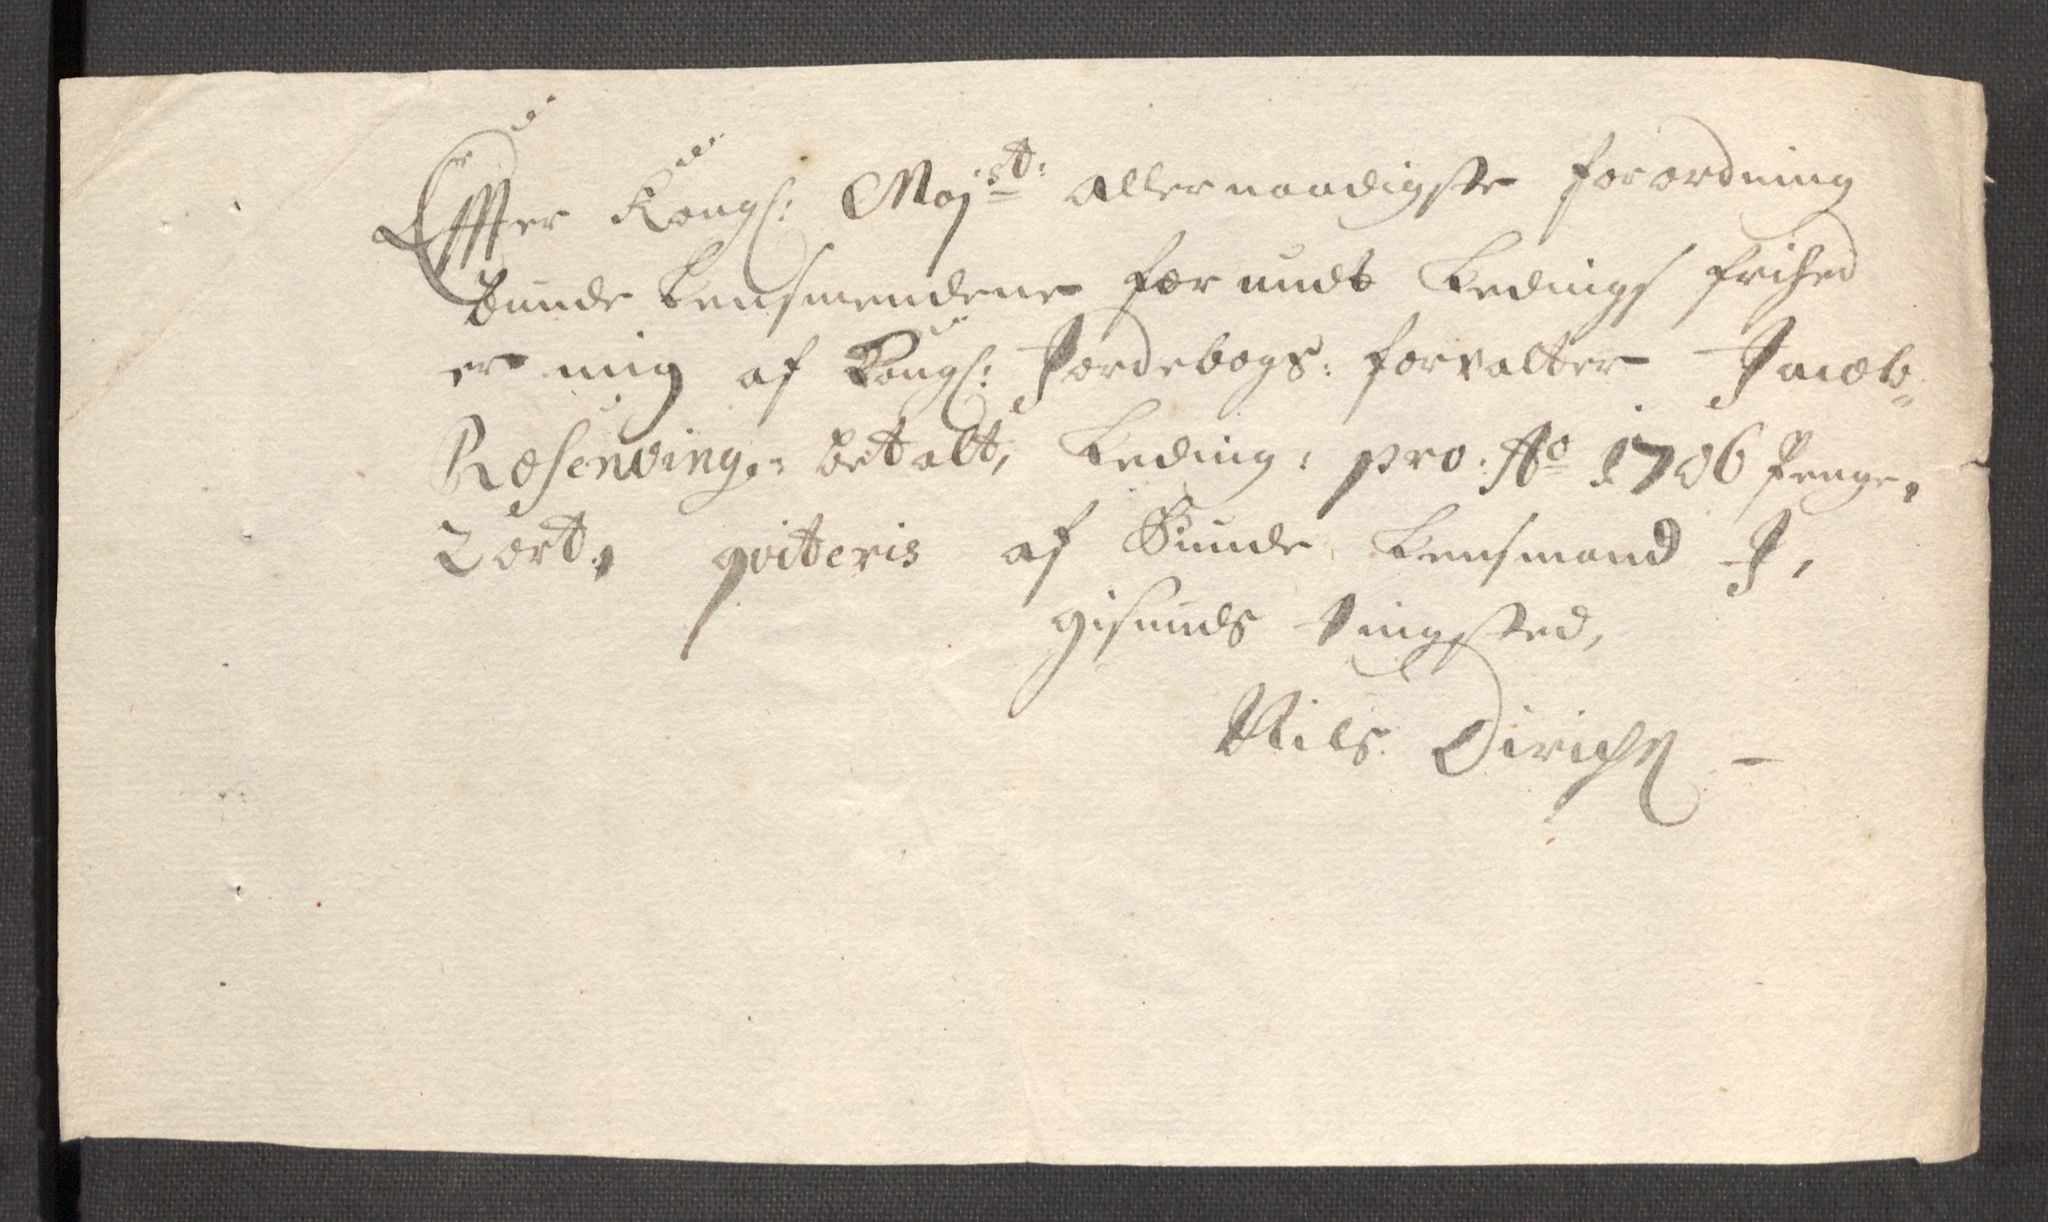 Effter Kongl: Maj.st: allernaadigste forordning
bunde Lensmendene for undt Ledings frihed
er mig af Kongl: Jordebogs: forvalter Jacob
Rosenving.: betalt, Leding: pro: Ao 1706 Penge,
2 ort, qviteris af Bunde Lensmand J,
gisunds Tingsted,
Nils Dirichs